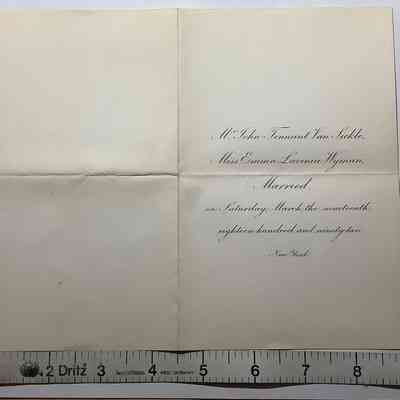 Mr. John Tennant Van Sickle,
Miss Emma Lavinia Wyman,
Married,
on Saturday, March the nineteenth,
eighteen hundred and ninety two.
New York.
2 Dritz 3 4 5 6 7 8